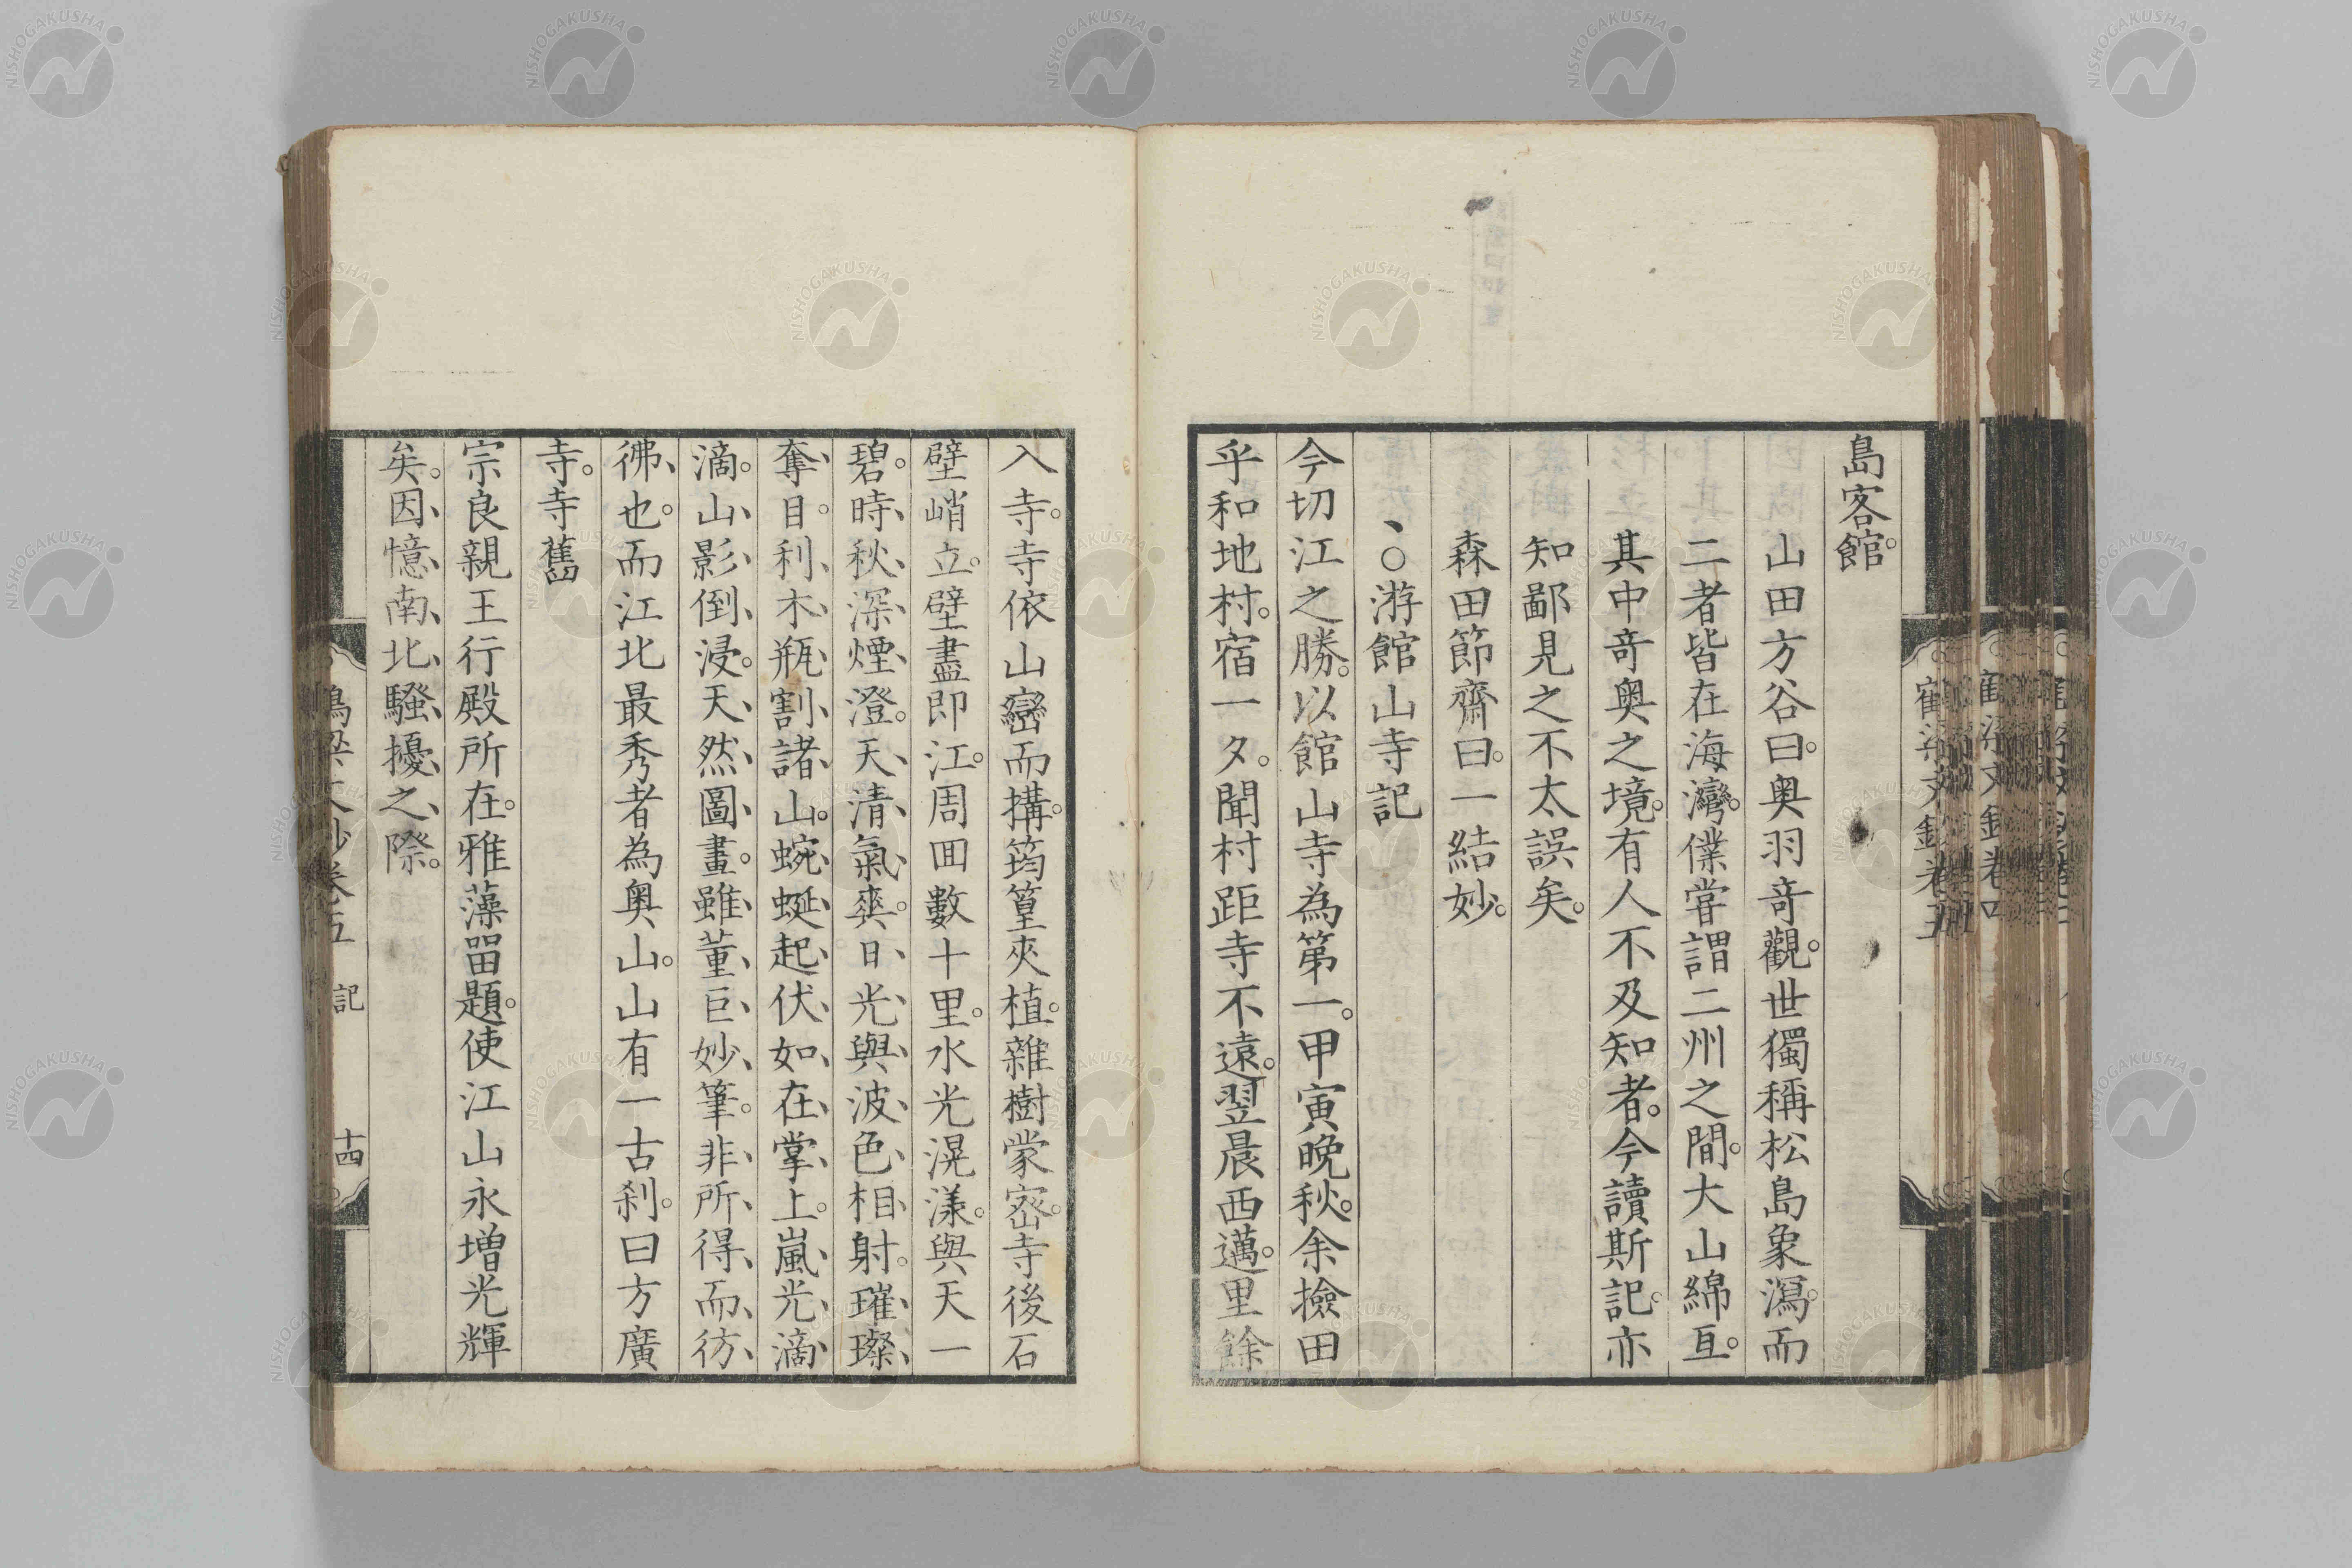 島客館。
山田方谷曰。奥羽奇觀。世獨稱松島象潟。而
二者皆在海灣。僕甞謂二州之間。大山綿亘。
其中奇奥之境。有人不及知者。今讀斯記。亦
知鄙見之不太誤矣。
森田節齋曰。一結妙。
、○游館山寺記
今切江之勝。以館山寺為第一。甲寅晩秋。余撿田
乎和地村。宿一夕。聞村距寺不遠。翌晨西邁。里餘
入寺。寺依山巒而搆。筠篁夾植。雜樹蒙密。寺後石
壁峭立。壁盡即江。周囬數十里。水光滉漾。與天一
碧。時、秋、深、煙、澄。天、清、氣、爽。日、光、與、波、色、相、射。璀、璨、
奪、目。利、木、瓶、割、諸、山。蜿、蜒、起、伏、如、在、掌、上。嵐、光、滴、
滴。山、影、倒、浸。天、然、圖、畫。雖、董、巨、妙、筆。非、所、得、而、彷、
彿、也。而江北最秀者為奥山。山有一古刹。曰方廣
寺。寺舊
宗良親王行殿所在。雅藻畱題。使江山永増光輝
矣。因、憶、南、北、騷、擾、之、際。
鶴梁文鈔卷五 記 十四
NISHOGAKUSHA